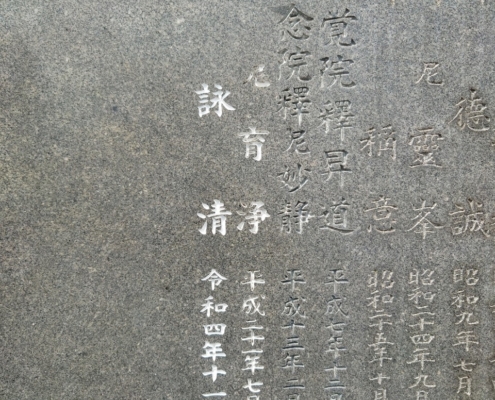 德誠 昭和九年七月
尼靈峯 昭和二十四年九月
稱意 昭和二十五年十月
覚院釋昇道 平成七年十二月
念院釋尼妙静 平成十三年二月
尼育浄 平成二十一年七月
詠清 令和四年十一